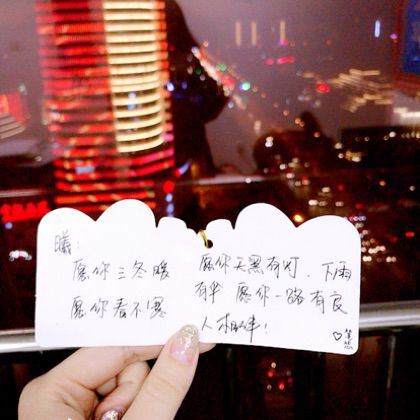 曦：
愿你三冬暖
愿你春不寒
愿你天黑有灯、下雨
有伞 愿你一路有良
人相伴！